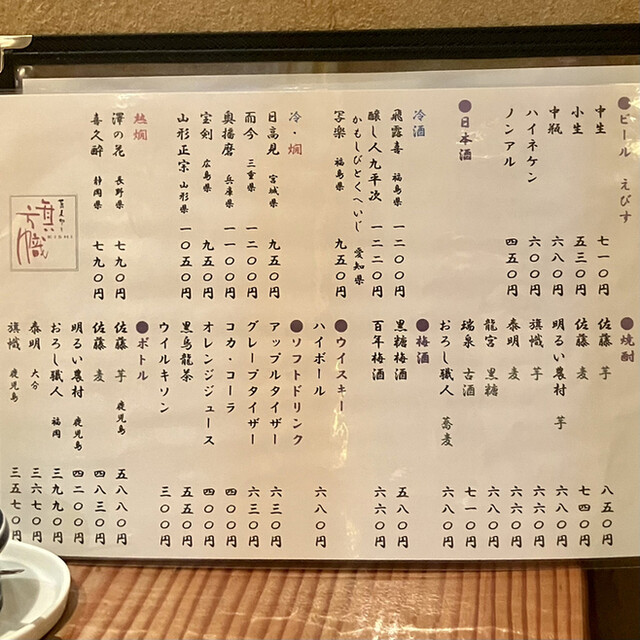 ●ビール えびす
中生 七一〇円
小生 五三〇円
中瓶 六八〇円
ハイネケン 六〇〇円
ノンアル 四五〇円
●日本酒
冷酒
飛露喜 福島県 一二〇〇円
醸し人九平次 一二二〇円
かもしびとくへいじ 愛知県
写楽 福島県 九五〇円
冷・燗
日高見 宮城県 九五〇円
而今 三重県 一二〇〇円
奥播磨 兵庫県 一一〇〇円
宝剣 広島県 九五〇円
山形正宗 山形県 一〇五〇円
熱燗
澤の花 長野県 七九〇円
喜久酔 静岡県 七九〇円
旗幟
●焼酎
佐藤 芋 八五〇円
佐藤 麦 七四〇円
明るい農村 芋 六八〇円
旗幟 芋 六六〇円
泰明 麦 六六〇円
龍宮 黒糖 六八〇円
瑞泉 古酒 七一〇円
おろし職人 蕎麦 六八〇円
●梅酒
黒糖梅酒 五八〇円
百年梅酒 六六〇円
●ウイスキー
ハイボール 六八〇円
●ソフトドリンク
アップルタイザー 六三〇円
グレープタイザー 六三〇円
コカ・コーラ 四〇〇円
オレンジジュース 四〇〇円
黒烏龍茶 五五〇円
ウイルキソン 三〇〇円
●ボトル
佐藤 芋 鹿児島 五八八〇円
佐藤 麦 四八三〇円
明るい農村 鹿児島 四二〇〇円
おろし職人 福岡 三九九〇円
泰明 大分 三六七〇円
旗幟 鹿児島 三五七〇円